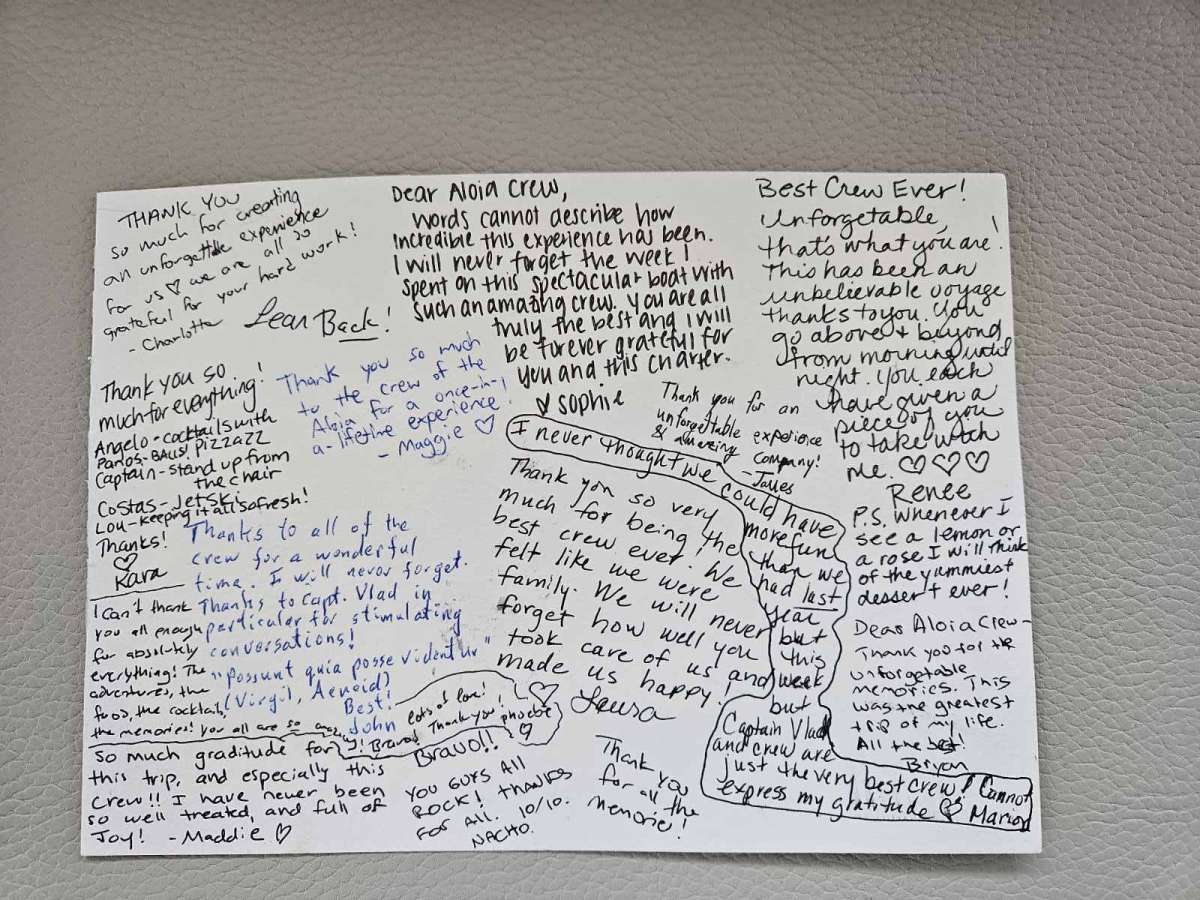 THANK YOU
so much for creating
an unforgettable experience
for us ♡ we are all so
grateful for your hard work!
- Charlotte
Lean Back!
Dear Aloia Crew,
Words cannot describe how
incredible this experience has been.
I will never forget the week I
spent on this spectacular boat with
such an amazing crew. You are all
truly the best and I will
be forever grateful for
you and this charter.
♡ sophie
Best Crew Ever!
Unforgetable,
that's what you are!
This has been an
unbelievable voyage
thanks to you. You
go above + beyond
from morning until
night. You each
have given a
piece of you
to take with
me. ♡♡♡
Renee
P.S. Whenever I
see a lemon or
a rose I will think
of the yummiest
dessert ever!
Thank you so
much for everything!
Angelo - cocktails with
Panos - BALLS! PIZZAZZ
Captain - stand up from
the chair
Costas - Jetski
Lou - keeping it all so fresh!
Thanks!
♡
Kara
Thank you so much
to the crew of the
Aloia for a once-in-
a-lifetime experience!
- Maggie ♡
Thank you for an
unforgettable experience
& amazing company!
- James
I never thought we could have
more fun
than we
had last
year
but
this
week
but
Captain Vlad
and crew are
just the very best crew! Cannot
express my gratitude ♡ Marion
Thank you so very
much for being the
best crew ever! We
felt like we were
family. We will never
forget how well you
took care of us and
made us happy!
♡ Laura
Thanks to all of the
crew for a wonderful
time. I will never forget.
Thanks to Capt. Vlad in
particular for stimulating
conversations!
"Possunt quia posse videntur"
(Virgil, Aeneid)
Best!
John
I can't thank
you all enough
for absolutely
everything! The
adventures, the
food, the cocktails,
the memories! You all are so amazing! Bravo! Thank you!
Lots of love!
phoebe ♡
Dear Aloia Crew-
Thank you for the
unforgetable
memories. This
was the greatest
trip of my life.
All the best!
Bryan
So much graditude for
this trip, and especially this
crew!! I have never been
so well treated, and full of
Joy! - Maddie ♡
Bravo!!
YOU GUYS ALL
ROCK! THANKS
FOR ALL. 10/10.
NACHO.
Thank you
for all the
memories!